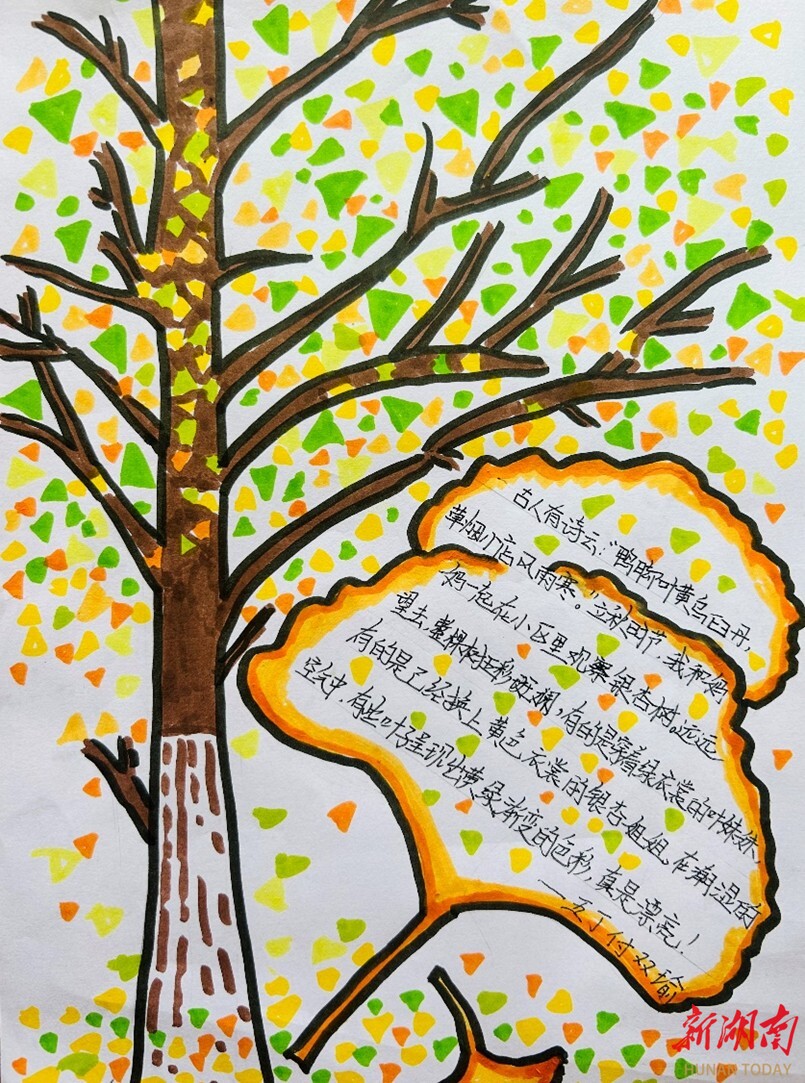 古人有诗云:“鸭脚叶黄乌臼丹,
草烟小店风雨寒。”立秋时节,我和妈
妈一起在小区里观察银杏树,远远
望去,整棵树五彩斑斓,有的是穿着绿衣裳的叶妹妹,
有的是已经换上黄色衣裳的银杏姐姐,在潮湿的
空气中,有些叶子呈现出黄绿渐变的色彩,真是漂亮!
付双瑜
新湖南
HUNAN TODAY